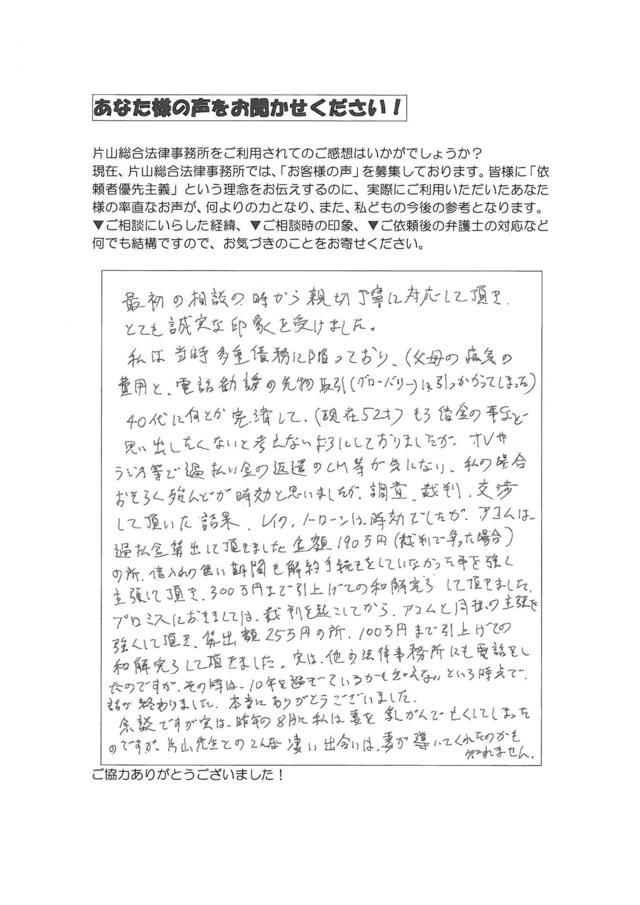 あなた様の声をお聞かせください！
片山総合法律事務所をご利用されてのご感想はいかがでしょうか？
現在、片山総合法律事務所では、「お客様の声」を募集しております。皆様に「依
頼者優先主義」という理念をお伝えするのに、実際にご利用いただいたあなた
様の率直なお声が、何よりの力となり、また、私どもの今後の参考となります。
▼ご相談にいらした経緯、▼ご相談時の印象、▼ご依頼後の弁護士の対応など
何でも結構ですので、お気づきのことをお寄せください。
最初の相談の時から親切丁寧に対応して頂き、
とても誠実な印象を受けました。
私は当時多重債務に陥っており、（父母の病気の
費用と、電話勧誘の先物取引（グローバリー）に引っかかってしまった）
40代に何とか完済して、（現在52才）もう借金の事など
思い出したくないと考えないようにしておりましたが、TVや
ラジオ等で過払い金の返還のCM等が気になり、私の場合
おそらく殆んどが時効と思いましたが、調査、裁判、交渉
して頂いた結果、レイク、ノーローンは時効でしたが、アコムは、
過払金算出して頂きました金額190万円（裁判で争った場合）
の所、借入れの無い期間も解約手続きをしていなかった事を強く
主張して頂き、300万円まで引上げての和解完了して頂きました。
プロミスにおきましては、裁判を起こしてから、アコムと同様の主張を
強くして頂き、算出額25万円の所、100万円まで引上げての
和解完了して頂きました。実は、他の法律事務所にも電話をし
たのですが、その時は、10年を過ぎているかも知えないという時点で、
話が終わりました。本当にありがとうございました。
余談ですが実は、昨年の8月に私は妻を乳がんで亡くしてしまった
のですが、片山先生とのこんな凄い出合いは、妻が導いてくれたのかも
知れません。
ご協力ありがとうございました！